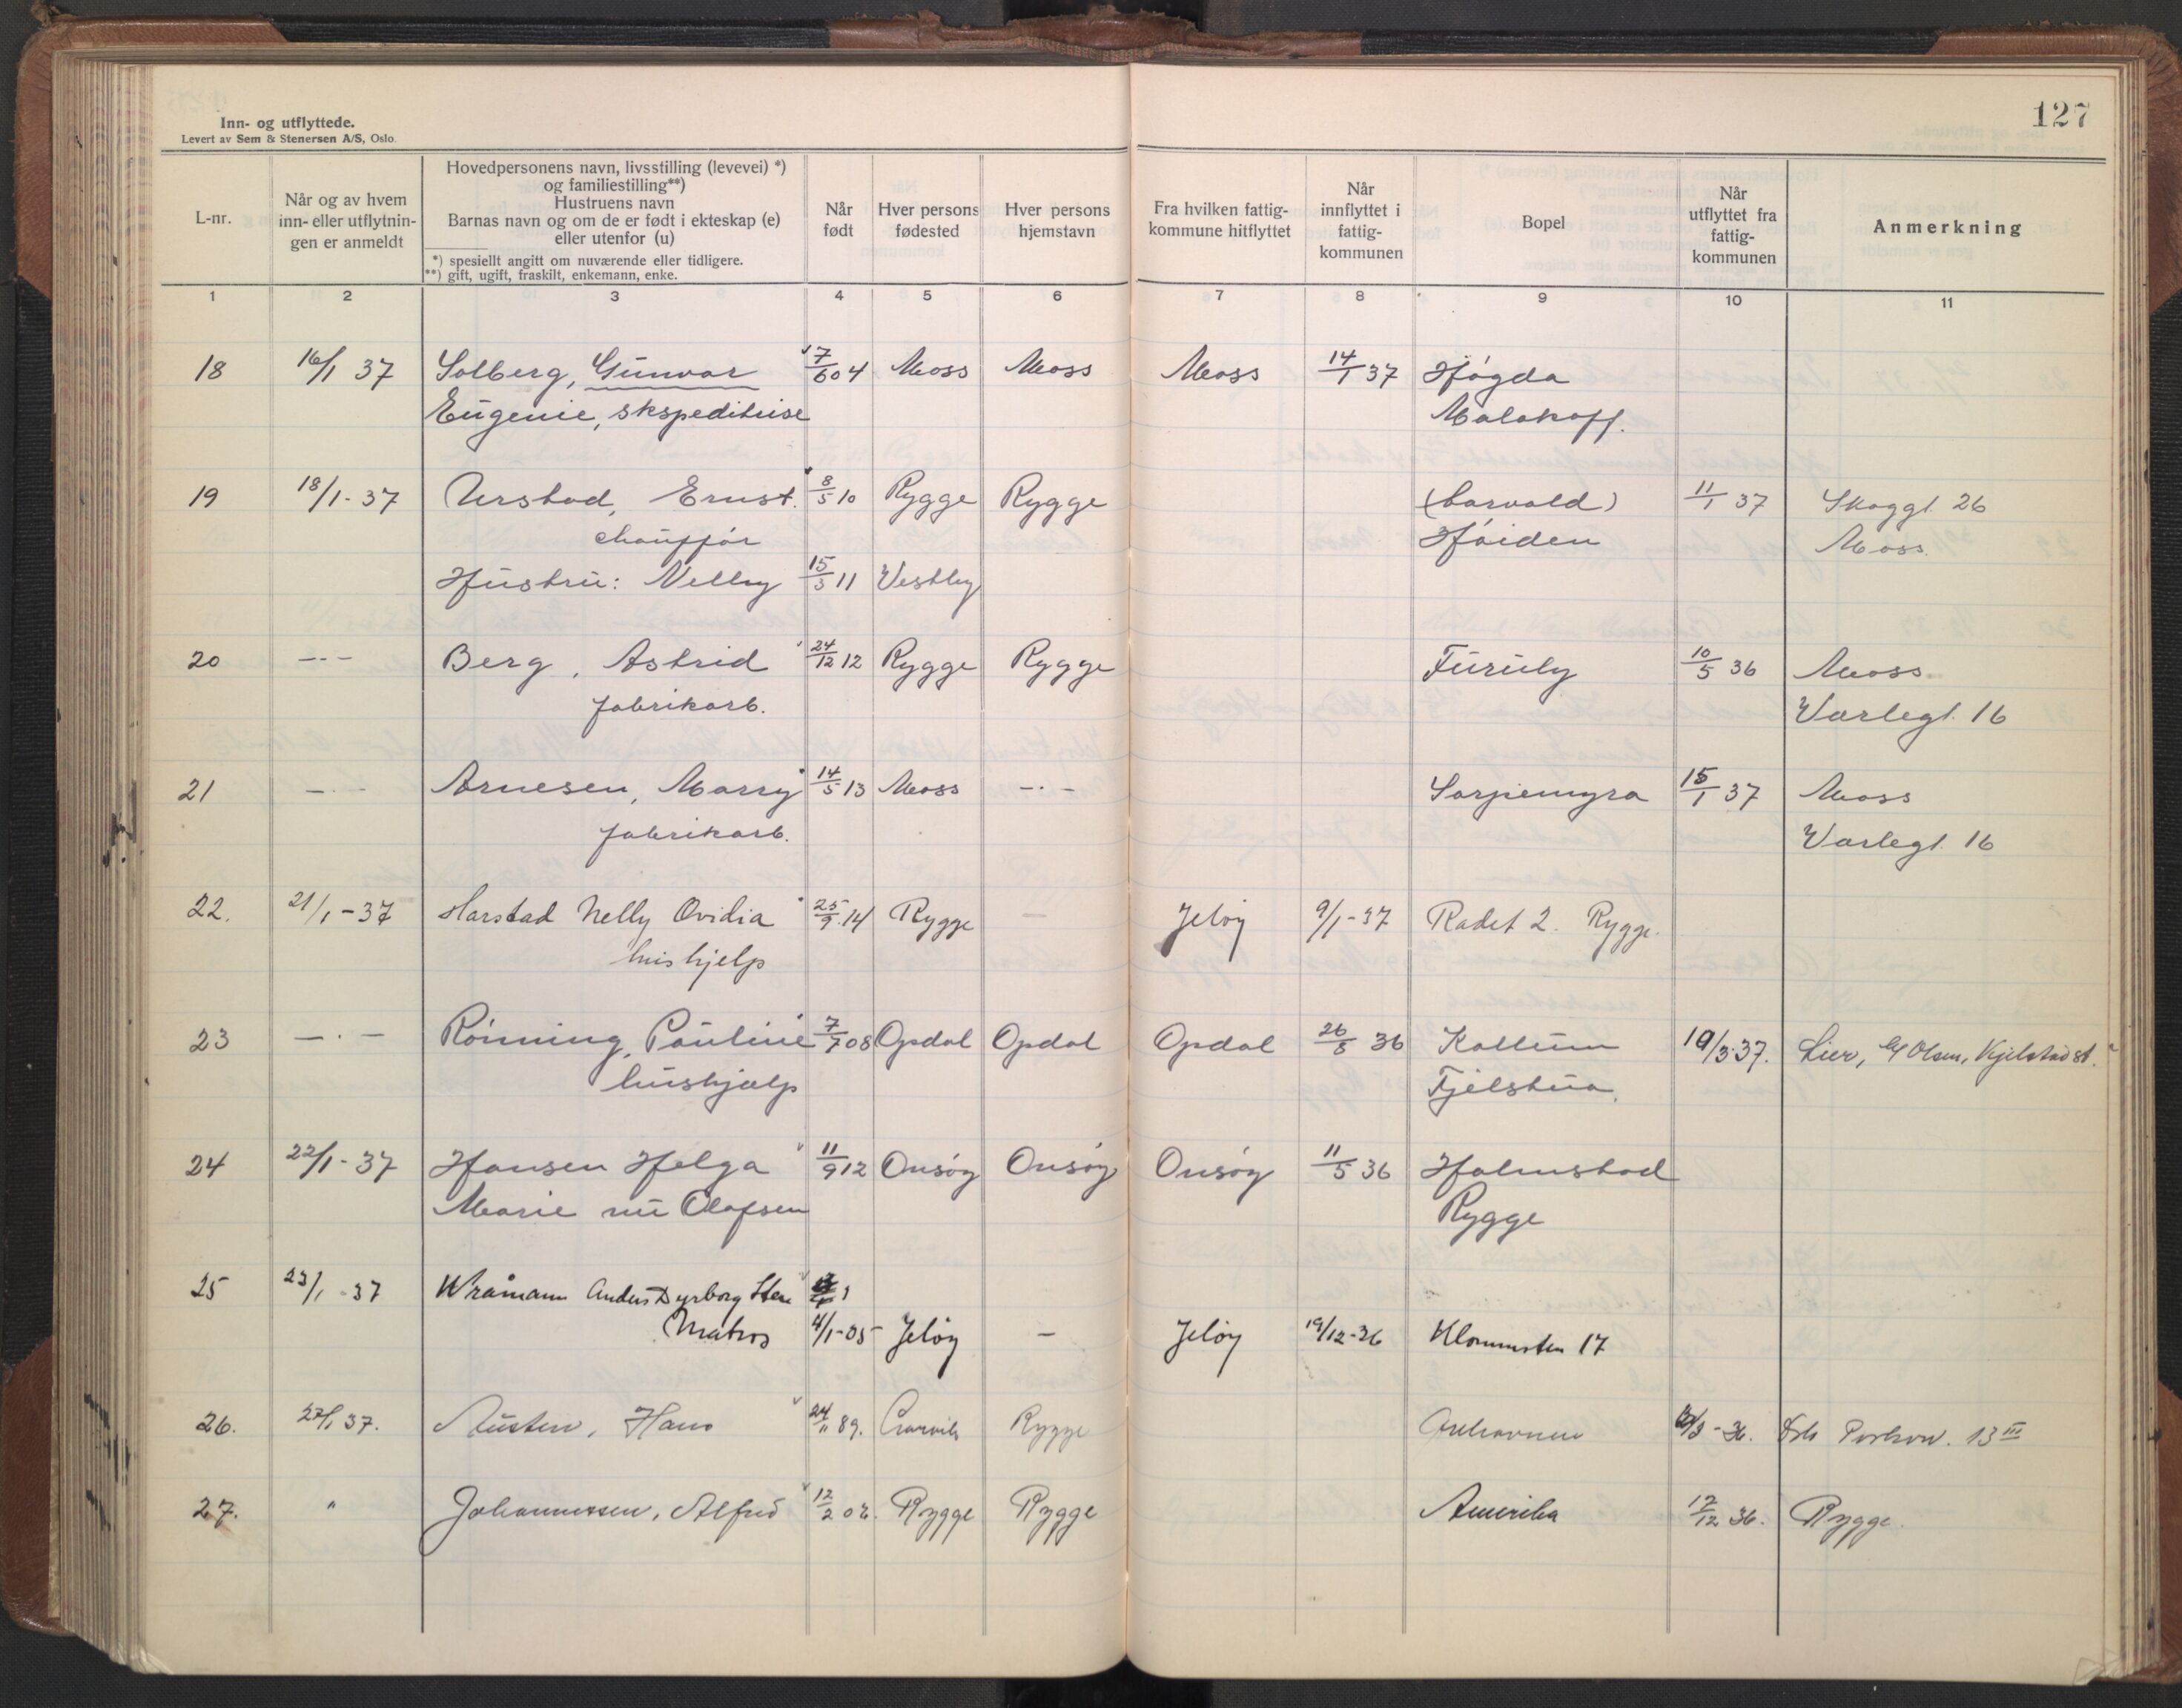 127
Inn- og utflyttede.
Levert av Sem & Stenersen A/S, Oslo.
L-nr.
Når og av hvem
inn- eller utflytnin-
gen er anmeldt
Hovedpersonens navn, livsstilling (levevei) *)
og familiestilling**)
Hustruens navn
Barnas navn og om de er født i ekteskap (e)
eller utenfor (u)
*) spesiellt angitt om nuværende eller tidligere.
**) gift, ugift, fraskilt, enkemann, enke.
Når
født
Hver persons
fødested
Hver persons
hjemstavn
Fra hvilken fattig-
kommune hitflyttet
Når
innflyttet i
fattig-
kommunen
Bopel
Når
utflyttet fra
fattig-
kommunen
Anmerkning
1 2 3 4 5 6 7 8 9 10 11
18 16/1 37 Solberg, Gunvor 7/6 04 Moss Moss Moss 14/1 37 Høgda
Eugenie, ekspeditrise Malakoff.
19 18/1-37 Urstad, Ernst. 8/5 10 Rygge Rygge (Carvald) 11/1 37 Skoggt. 26
chauffør Høiden Moss.
Hustru: Nelly 15/3 11 Vestby
20 -"- Berg, Astrid 24/12 12 Rygge Rygge Furuly 10/5 36 Moss
fabrikarb. Varlegt. 16
21 -"- Arnesen, Marry 14/5 13 Moss -"- Sarpemyra 15/1 37 Moss
fabrikarb. Varlegt. 16
22. 21/1-37 Harstad Nelly Ovidia 25/9 14 Rygge - Jeløy 9/1-37 Rådet 2. Rygge.
hushjelp
23 -"- Rønning, Pauline 7/7 08 Opdal Opdal Opdal 26/8 36 Kallum 19/3 37. Lier, Olsen, Kjelstad st.
hushjelp Fjelstua.
24 22/1-37 Hansen Helga 11/9 12 Onsøy Onsøy Onsøy 11/5 36 Halmstad
Marie nu Olafsen Rygge
25 23/1-37 Wråmann Anders Dyrborg
Matros 4/1-05 Jeløy - Jeløy 19/12-36 Klommsten 17
26. 27/1 37. Austen, Hans 24/11 89. Rygge 36. 13 III
27. " Johannessen, Alfred 12/2 Rygge Rygge Amerika 12/12 36. Rygge.